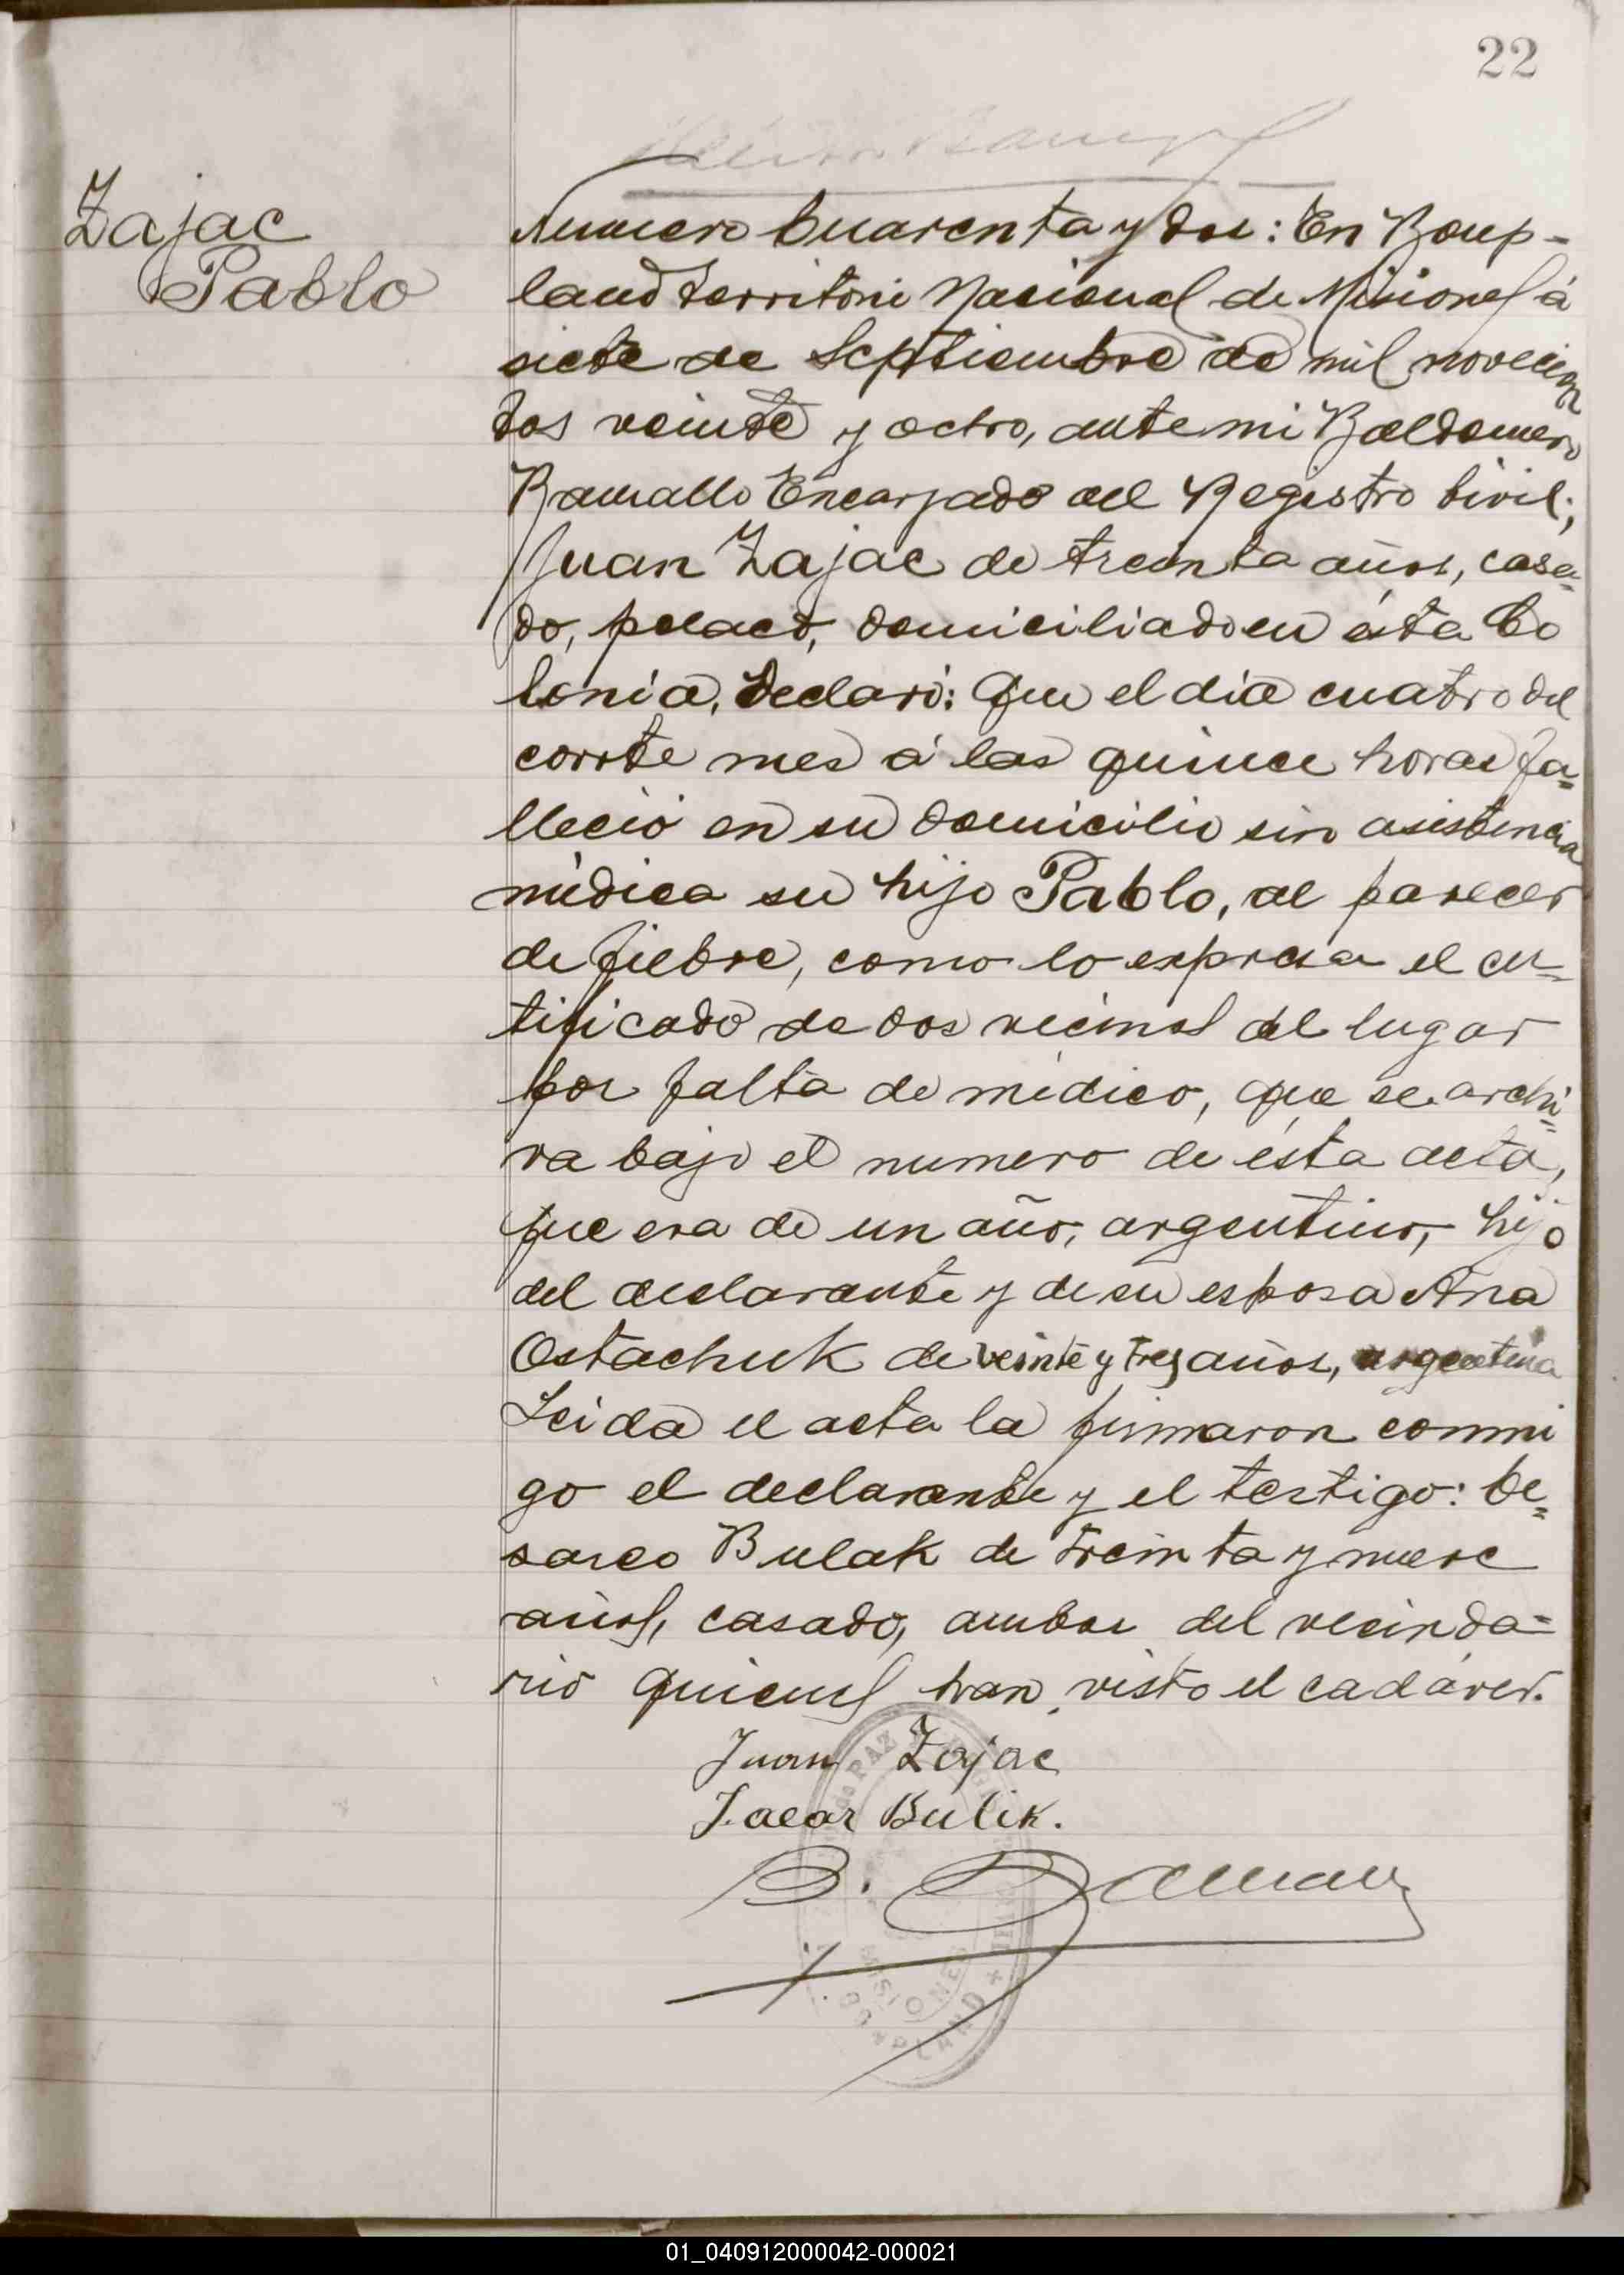 22
Zajac
Pablo
Numero Cuarenta y dos: En Bomp-
land Territorio Nacional de Misiones á
siete de Septiembre de mil novecien
tos veinte y ocho, ante mi Baldomero
Ramallo Encargado del Registro Civil;
Juan Zajac de treinta años, casa=
do, polaco, domiciliado en ésta Co
lonia, declaró: Que el dia cuatro del
corrte mes á las quince horas fa=
lleció en su domicilio sin asistencia
médica su hijo Pablo, al parecer
de fiebre, como lo expresa el cer=
tificado de dos vecinos del lugar
por falta de médico, que se archi=
va bajo el numero de ésta acta,
que era de un año, argentino, hijo
del declarante y de su esposa Ana
Ostachuk de veinte y tres años, argentina
Leida el acta la firmaron conmi
go el declarante y el testigo: Ce=
sareo Bulak de treinta y nueve
años, casado, ambos del vecinda=
rio quienes han visto el cadáver.
Juan Zajac
Bulik.
B.
PAZ
MISIONES
BOMPLAND
01_040912000042-000021